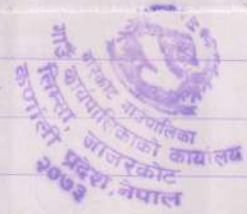 बारेकोट गाउँपालिका
गाउँ कार्यपालिकाको कार्यालय
जाजरकोट
कर्णाली प्रदेश, नेपाल
२०७३